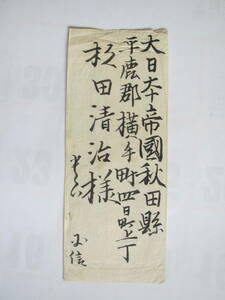 大日本帝國秋田縣
平鹿郡橫手町四日町上丁
杉田清治様